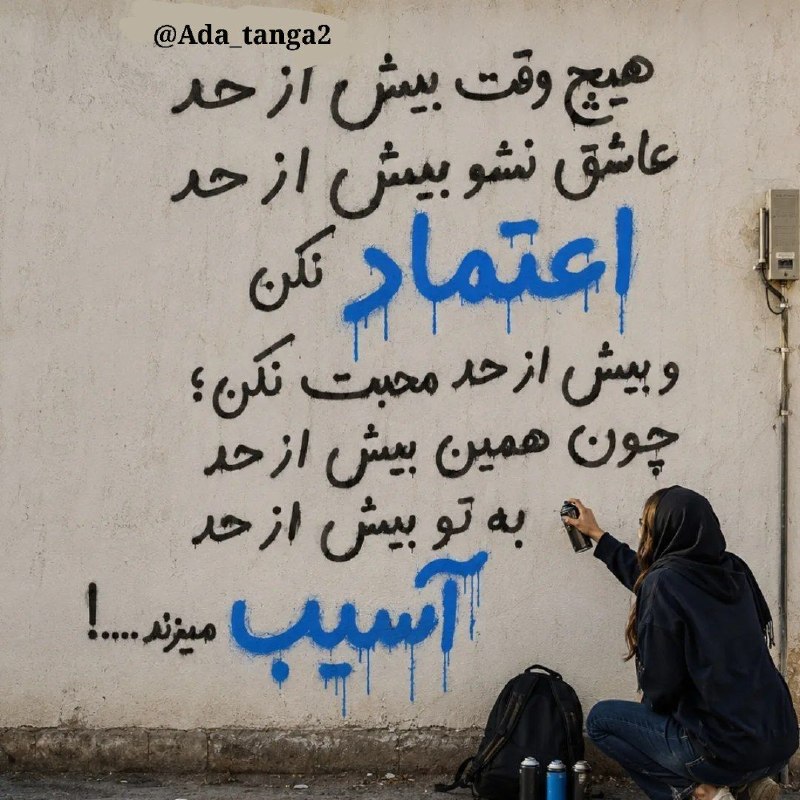 @Ada_tanga2
هیچ وقت بیش از حد
عاشق نشو بیش از حد
اعتماد نکن
و بیش از حد محبت نکن؛
چون همین بیش از حد
به تو بیش از حد
آسیب میزند....!